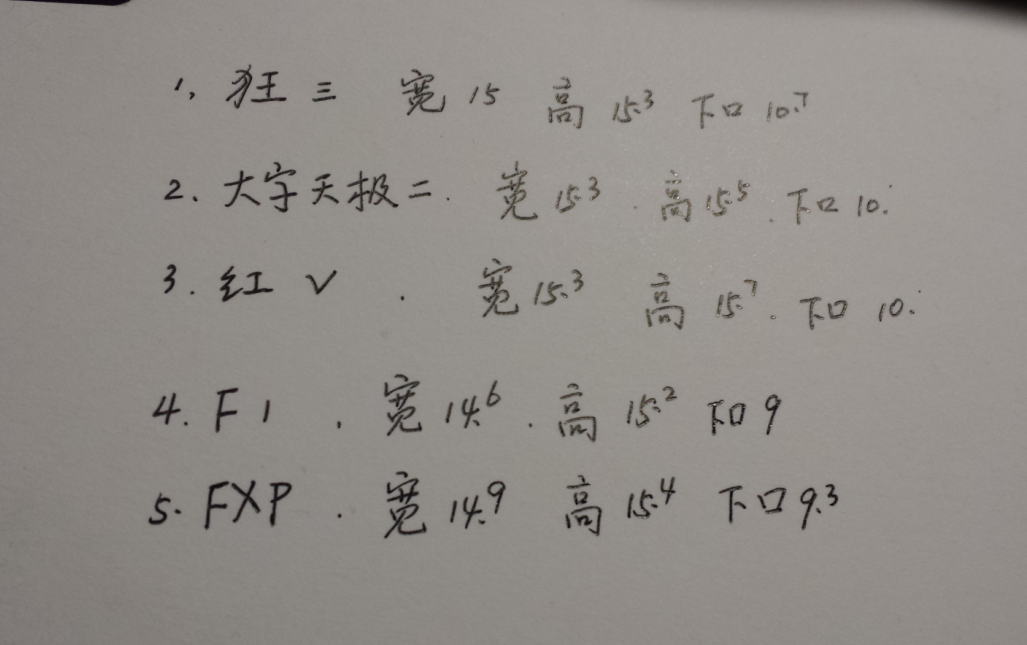 1. 狂三 宽 15 高 15.3 下口 10.7
2. 大字天极二. 宽 15.3 . 高 15.5 . 下口 10.
3. 红 V . 宽 15.3 高 15.7 . 下口 10.
4. F1 . 宽 14.6 . 高 15.2 下口 9
5. FXP . 宽 14.9 高 15.4 下口 9.3